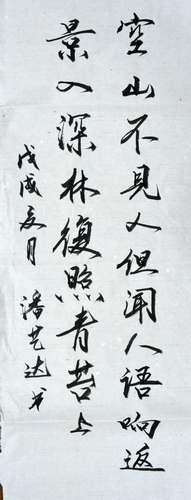 空山不見人但闻人语响返
景入深林復照青苔上
戊戌夏月 潘艺达书